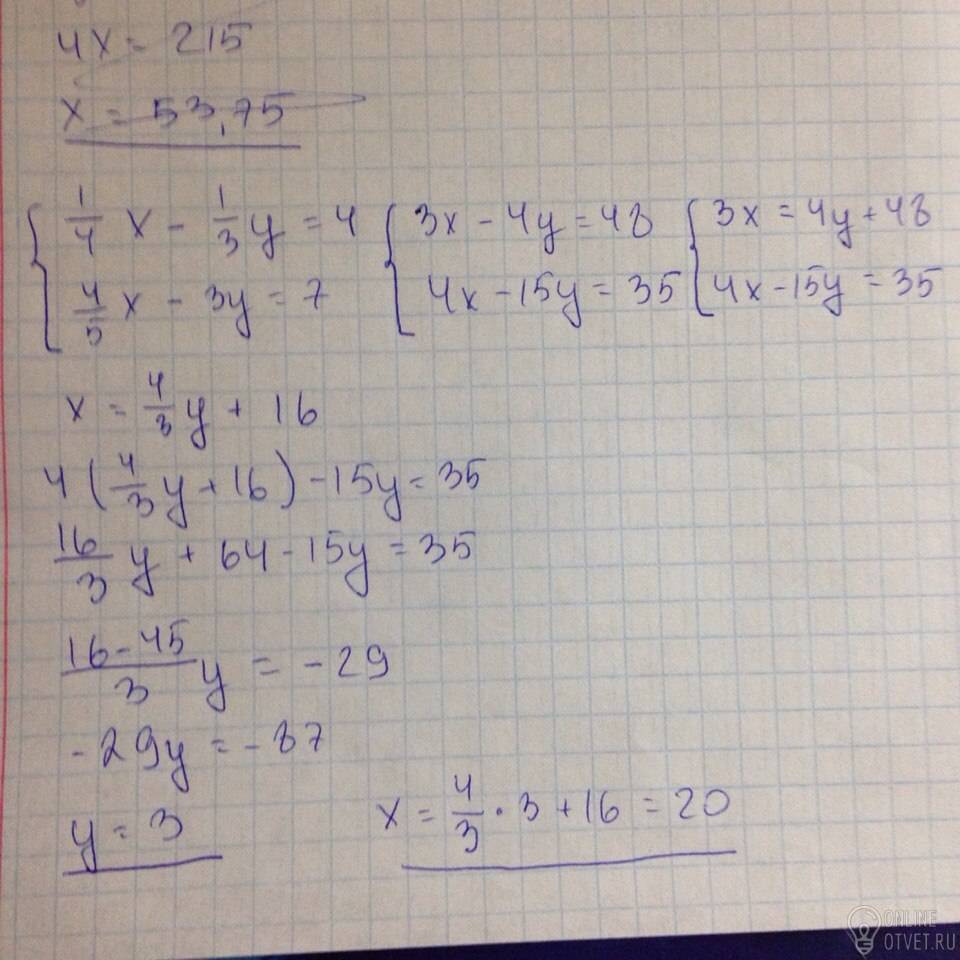 4x = 215
x = 53,75
{ 1/4 x - 1/3 y = 4 { 3x - 4y = 48 { 3x = 4y + 48
4/5 x - 3y = 7 4x - 15y = 35 4x - 15y = 35
x = 4/3 y + 16
4 ( 4/3 y + 16 ) - 15y = 35
16/3 y + 64 - 15y = 35
16 - 45/3 y = - 29
- 29y = - 87
y = 3 x = 4/3 · 3 + 16 = 20
ONLINE
OTVET.RU